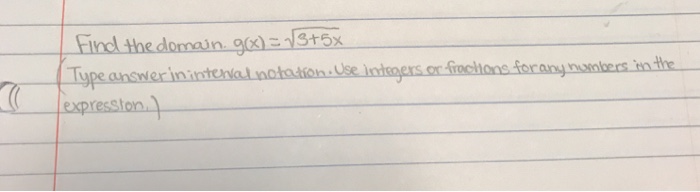 Find the domain. g(x) = √3+5x
(Type answer in interval notation. Use integers or fractions for any numbers in the
expression.)